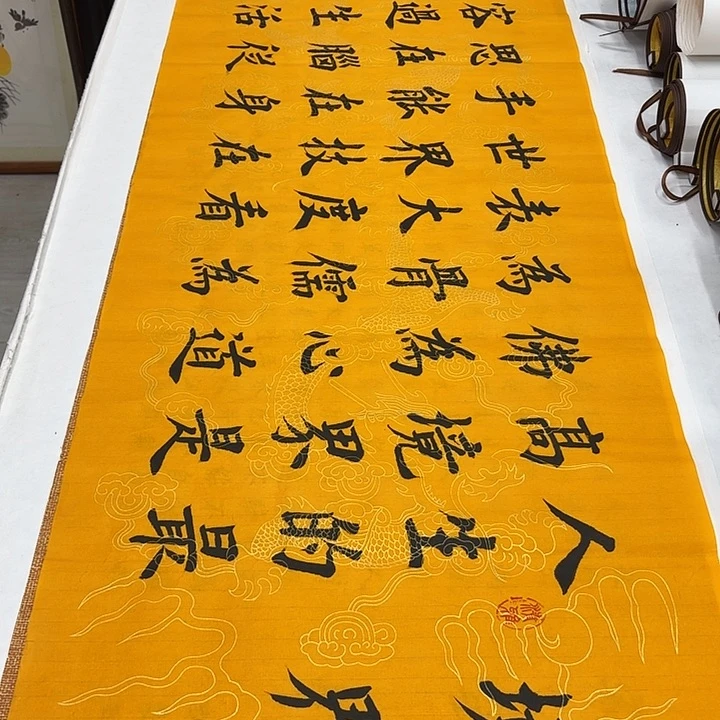 人生的最
高境界是
佛為心道
為骨儒為
表大度看
世界技在
手能在身
思在腦從
容過生活